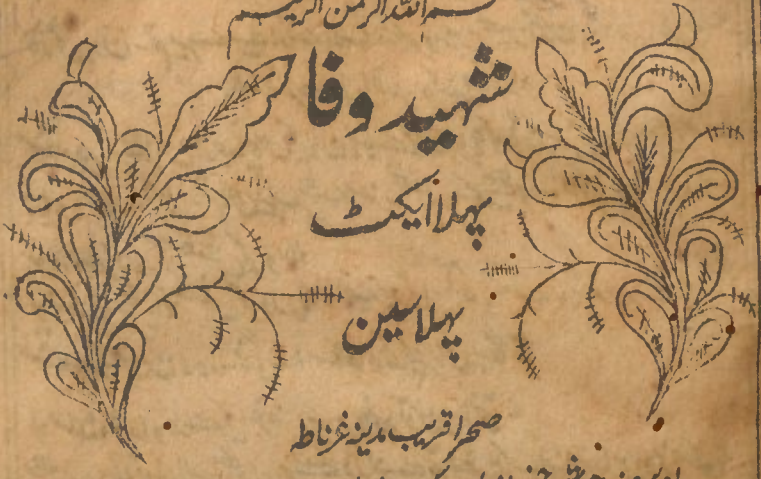 بسم اللہ الرحمن الرحیم
شہید وفا
پہلا ایکٹ
پہلا سین
صحرا قریب مدینہ غرناطہ